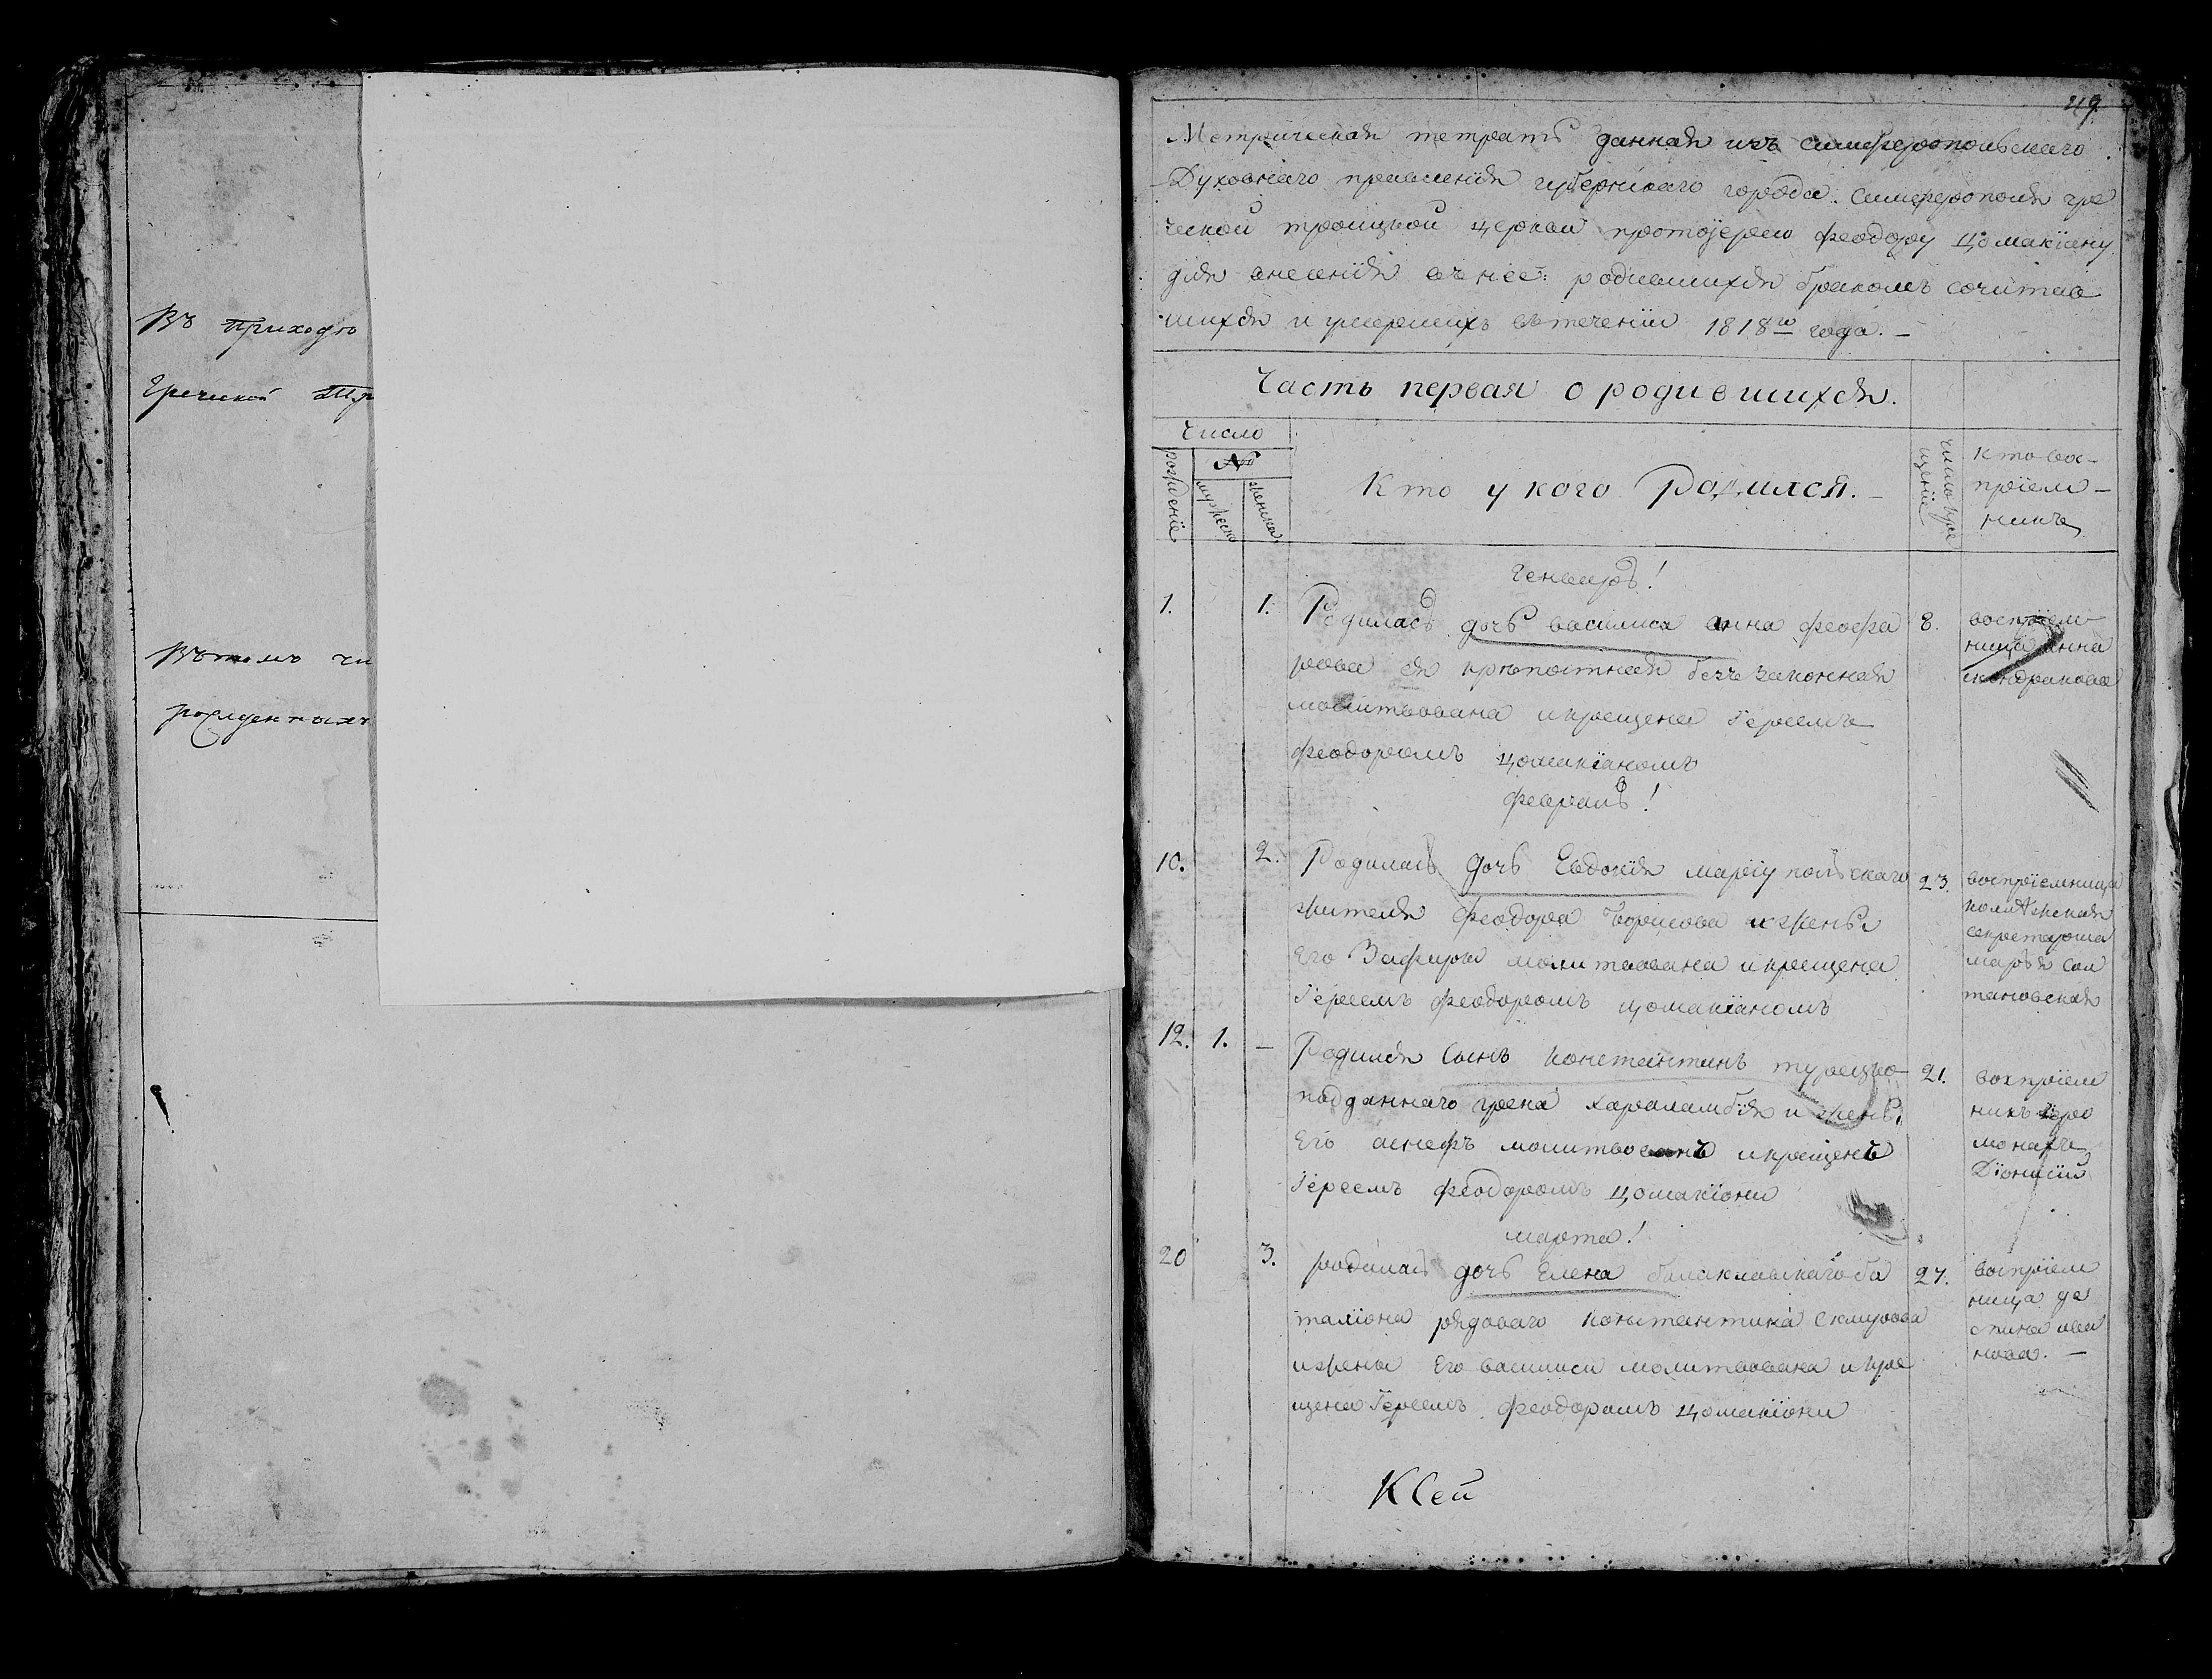 Въ приходѣ
Греческой
Въ томъ чи
рожденныхъ
219.
Метрическая тетрать данная изъ симферопольскаго
Духовнаго правления губернскаго города симферополя гре
ческой троицкой церкви протоіерею феодору цомакïану
для внесения въ нее: родившихся бракомъ сочитав
шихся и умершихъ въ течении 1818го года. —
Часть первая о родившихся.
Число
рождение
№
мужеска
женска
Кто у кого Родился. —
число кре
щение
Кто вос-
прïем-
никъ
Генварь!
1. 1. Родилась дочь василиса анна феофа
рова я крѣпостная беззаконная
молитвована и крещена Іереемъ
феодоромъ цомакïаномъ
8.
воспрïем
ница анна
кондракова
февраль!
10. 2. Родилась дочь Евдокïя марïупольскаго
жителя феодора борисова и жены
Его Зафиры молитвована и крещена
Іереемъ феодоромъ цомакïаномъ
23.
воспрïемница
колѣжская
секретарша
марья сал
тановская
12. 1. — Родился сынъ константинъ турецко
подданнаго грека харалампïя и жены
Его аснефъ молитвованъ и крещенъ
Іереемъ феодоромъ цомакïони
21.
воспрïем
никъ ïеро
монахъ
Дïонисïй
марта!
20 3. родилась дочь Елена балаклавскаго ба
талïона рядоваго константина склирова
и жены Его василиси молитвована и кре
щена Іереемъ феодоромъ цомакïони
27.
воспрïем
ница де
спина ива
нова. —
К Сей